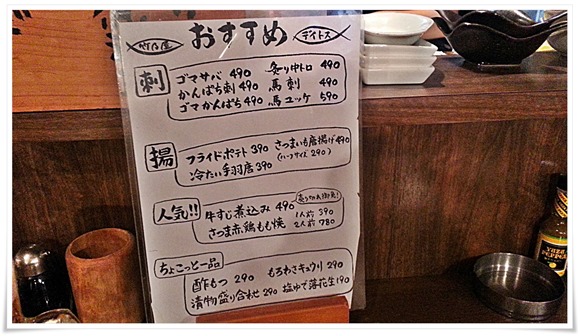 竹乃屋 おすすめ デイトス
刺
ゴマサバ 490 炙り中トロ 490
かんぱち刺 490 馬刺 490
ゴマかんぱち 490 馬ユッケ 590
揚
フライドポテト 390 さつまいも唐揚げ 490
(ハーフサイズ 290)
冷たい手羽唐 390
人気!! 売り切れ御免!
牛すじ煮込み 490 1人前 390
さつま赤鶏もも焼 2人前 780
ちょこっと一品
酢もつ 290 もろみさキュウリ 290
漬物盛り合わせ 290 塩ゆで落花生 190
YUZU
PEPPER